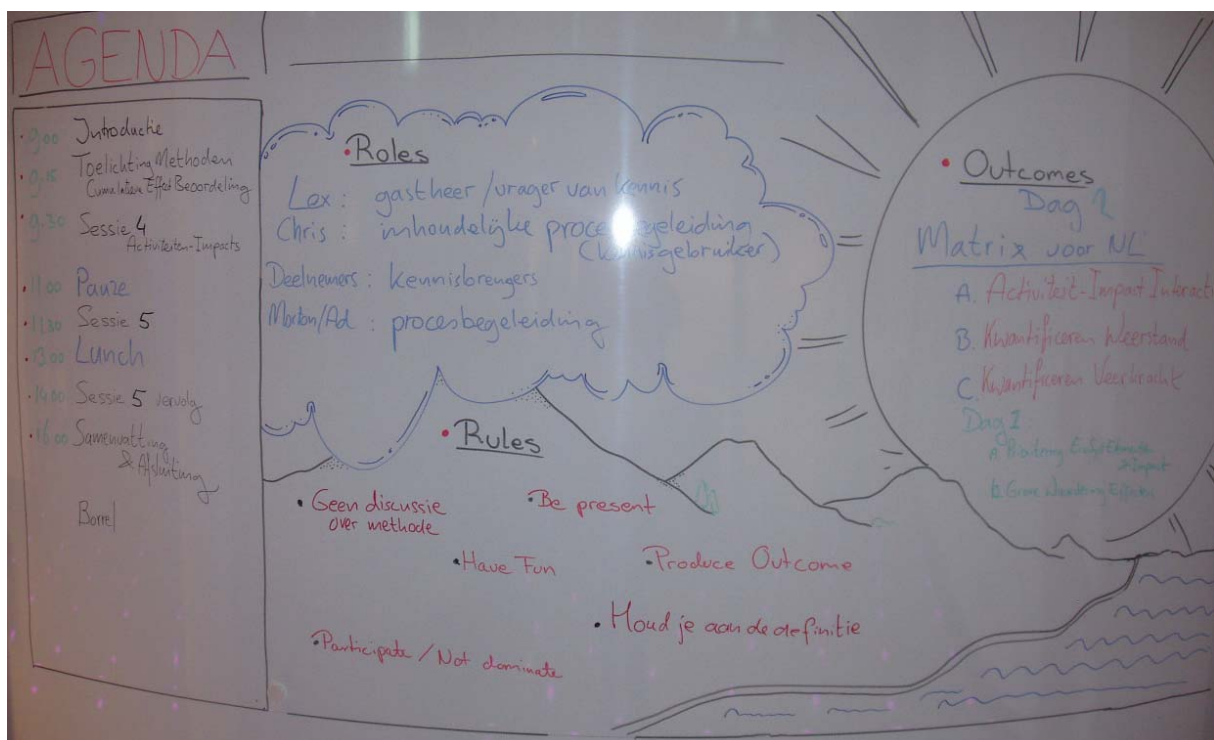 AGENDA
• 9:00 Introductie
• 9.15 Toelichting Methoden
Cumulatieve Effect Beoordeling
• 9.30 Sessie 4
Activiteiten-Impacts
• 11.00 Pauze
• 11.30 Sessie 5
• 13.00 Lunch
• 14.00 Sessie 5 vervolg
• 16.00 Samenvatting
& Afsluiting
Borrel
• Roles
Lex : gastheer / vrager van kennis
Chris : inhoudelijke procesbegeleiding
(kennisgebruiker)
Deelnemers : kennisbrengers
/Ad : procesbegeleiding
• Rules
• Geen discussie
over methode
• Be present
• Have Fun
• Produce Outcome
• Houd je aan de definitie
• Participate / Not dominate
• Outcomes
Dag 2
Matrix voor NL
A. Activiteit-Impact Interact
B. Kwantificeren Weerstand
C. Kwantificeren Veerkracht
Dag 1:
A.
Impact
B.